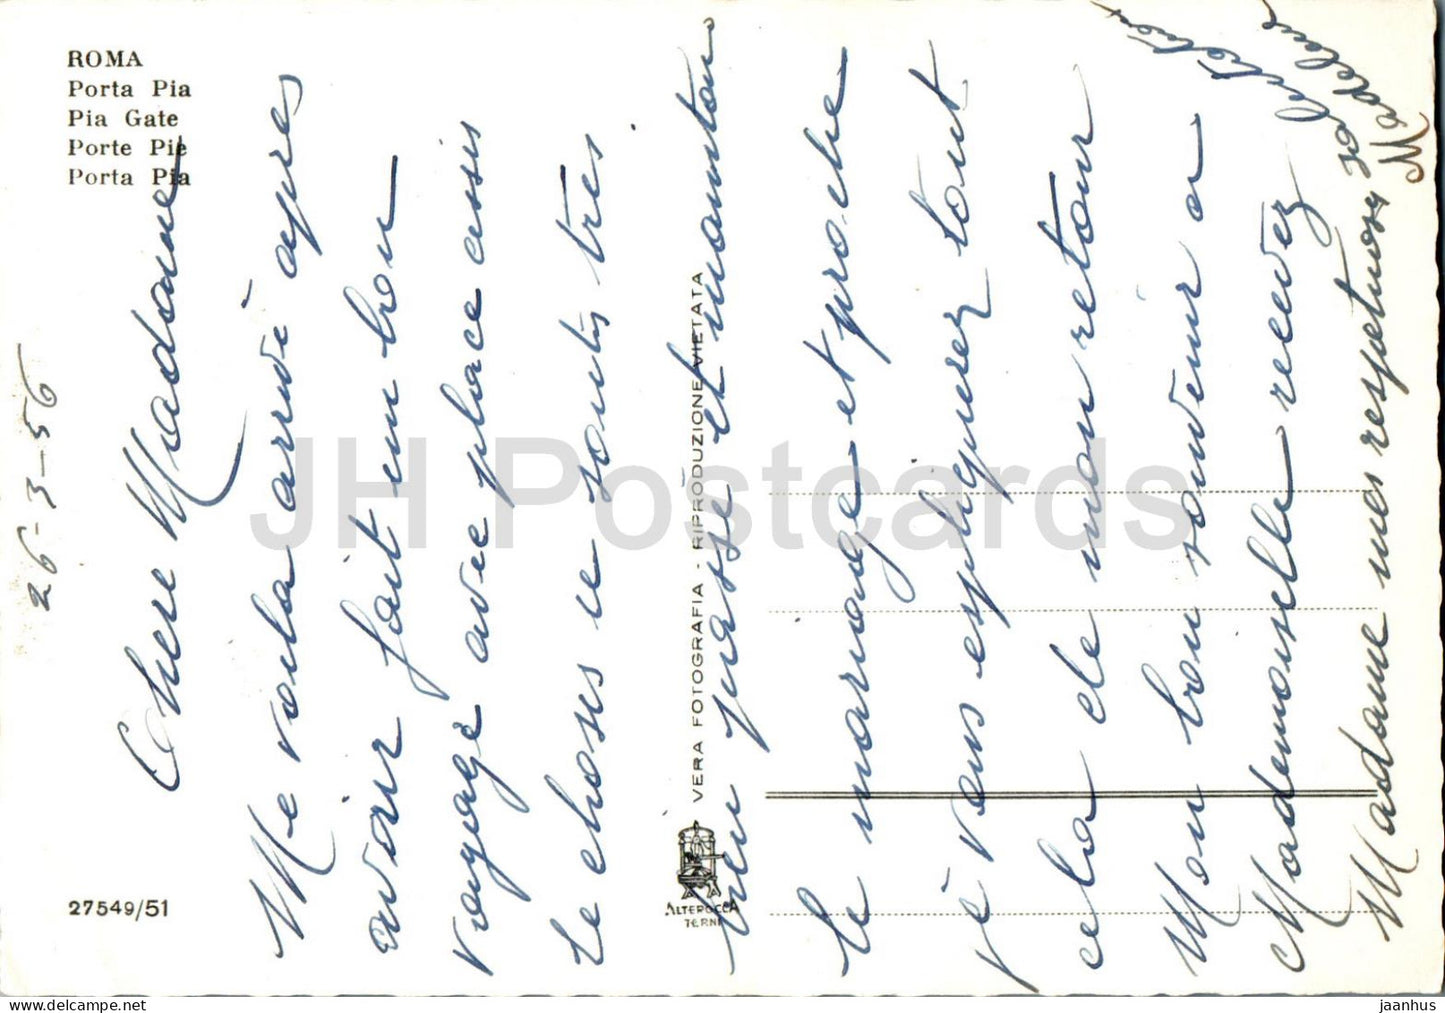 ROMA
Porta Pia
Pia Gate
Porte Pie
Porta Pia
26-3-56
Chere Madame
Me voila arrivè apres
avoir fait un bon
voyage avec place assis
Le choses ce sonts tres
bien passe et maintenan
le mariage et proche
je vous espliquerez tout
cela de mon retour
Mon bon souvenir a
Mademoiselle recevez
Madame mes respetuosy
Madeleine
27549/51
VERA FOTOGRAFIA - RIPRODUZIONE VIETATA
ALTEROCCA
TERNI
JH Postcards
jaanhus @ delcampe.net